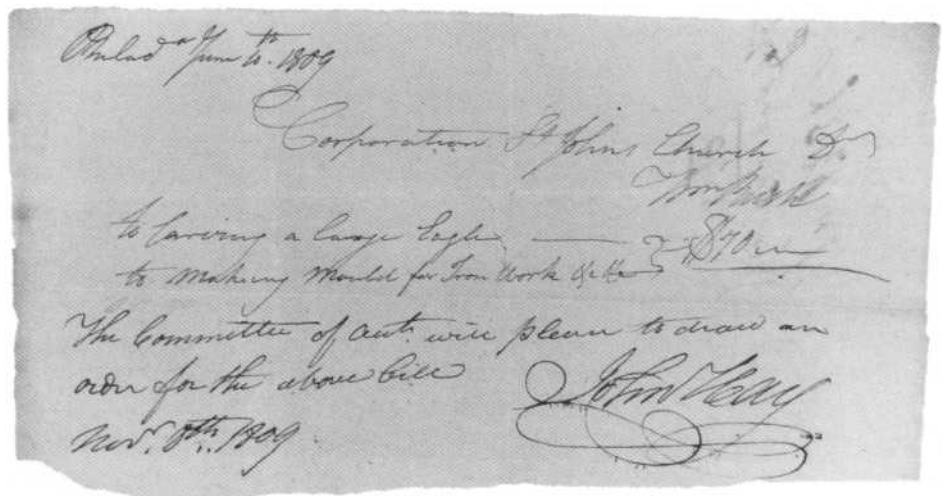 Philada June 10th. 1809
Corporation St Johns Church Dr
Wm Rush
to Carving a large Eagle
to making mould for Iron Work &c &c } $70
The Committee of acct. will please to draw an
order for the above bill
Novr. 8th. 1809.
John Hay